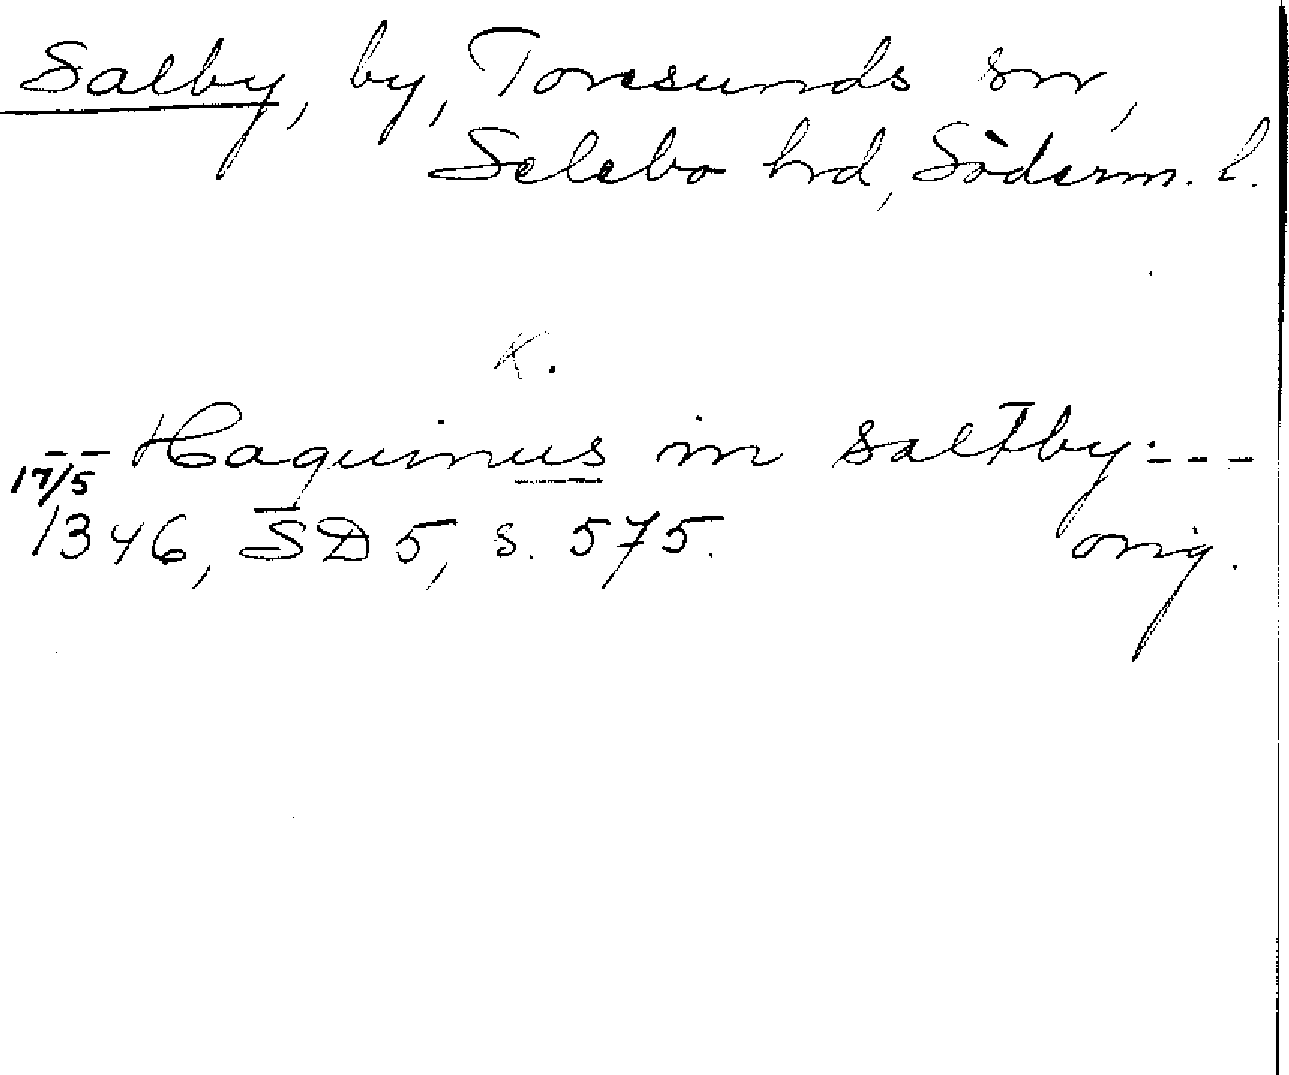 Salby, by, Toresunds sn,
Selebo hd, Söderm. l.
K.
-- Haquinus in saltby: ---
17/5 1346, SD 5, s. 575. orig.